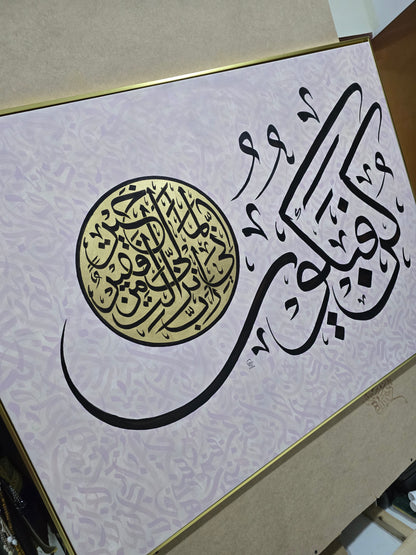 كُن فَيَكُون
رَبِّ إِنِّي لِمَا أَنزَلْتَ إِلَيَّ مِنْ خَيْرٍ فَقِيرٌ